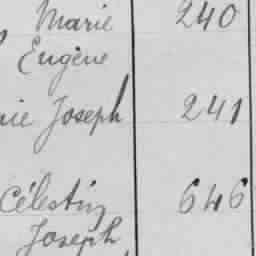 Marie 240
Eugène
Joseph 241
Célestin 646
Joseph